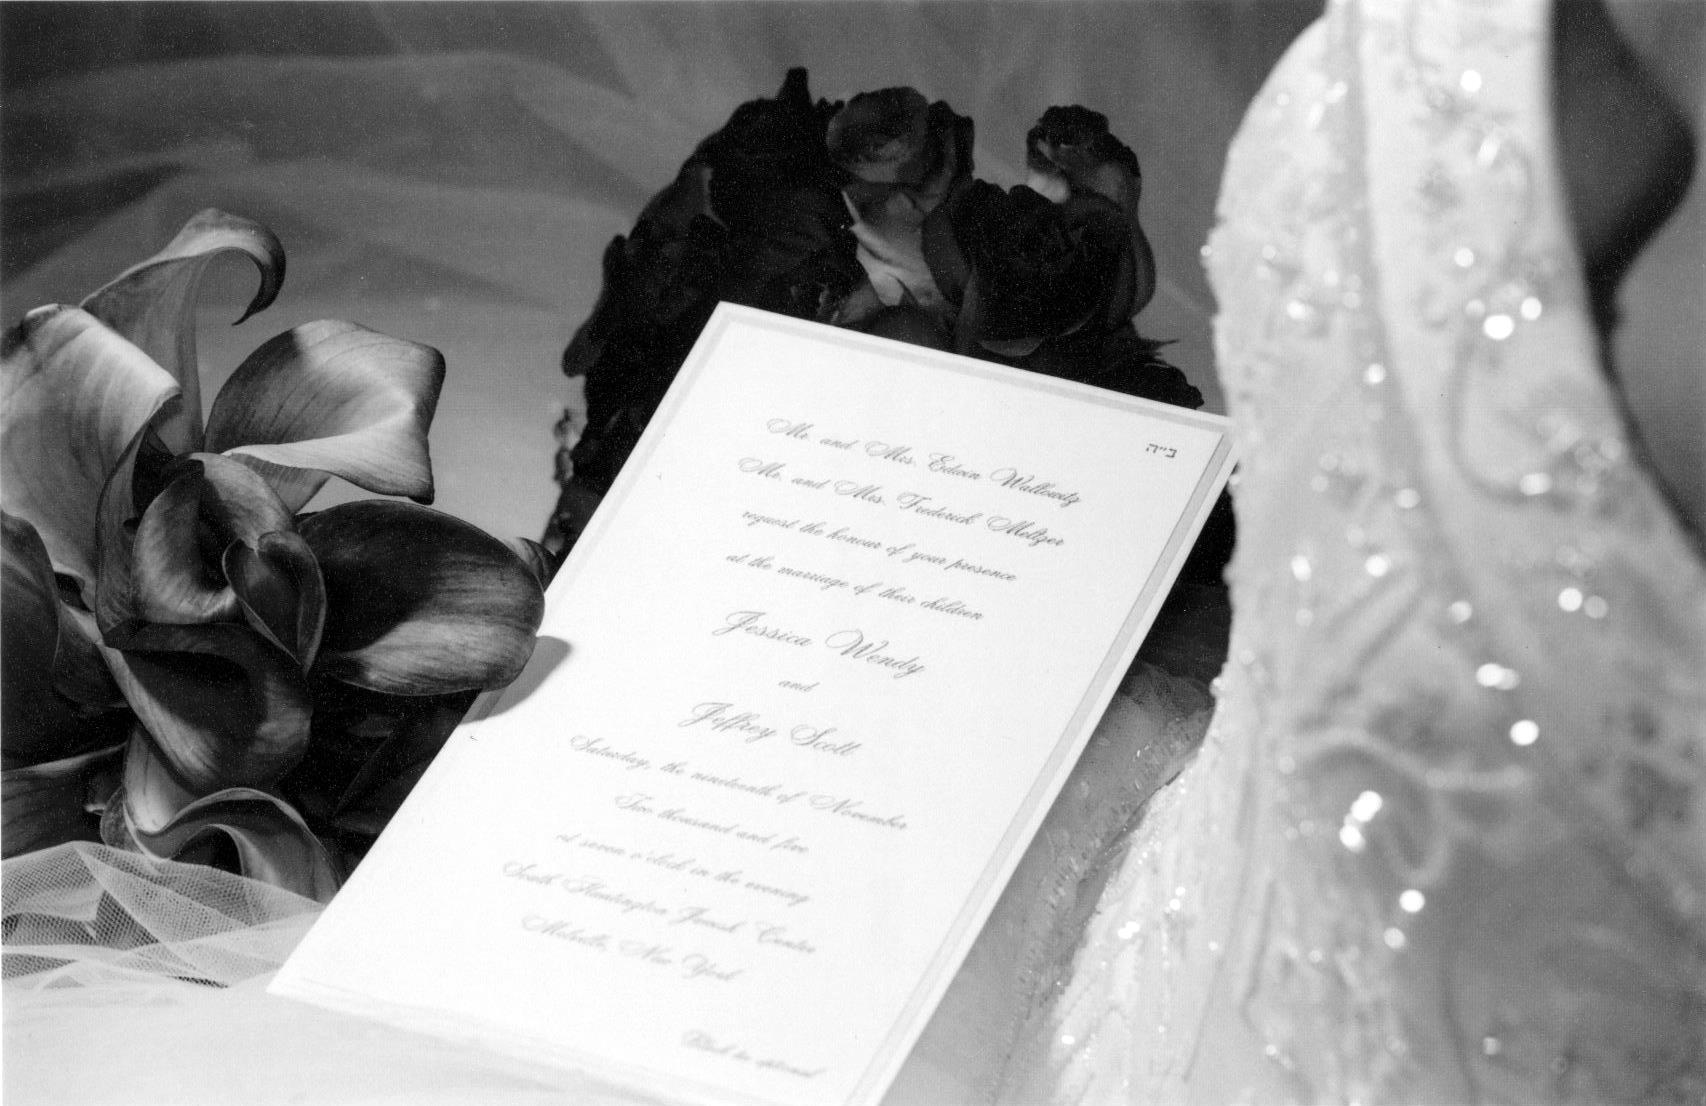 ב״ה
Mr. and Mrs. Edwin Wallowitz
Mr. and Mrs. Frederick Meltzer
request the honour of your presence
at the marriage of their children
Jessica Wendy
and
Jeffrey Scott
Saturday, the nineteenth of November
Two thousand and five
at seven o'clock in the evening
South Huntington Jewish Center
Melville, New York
Black tie optional